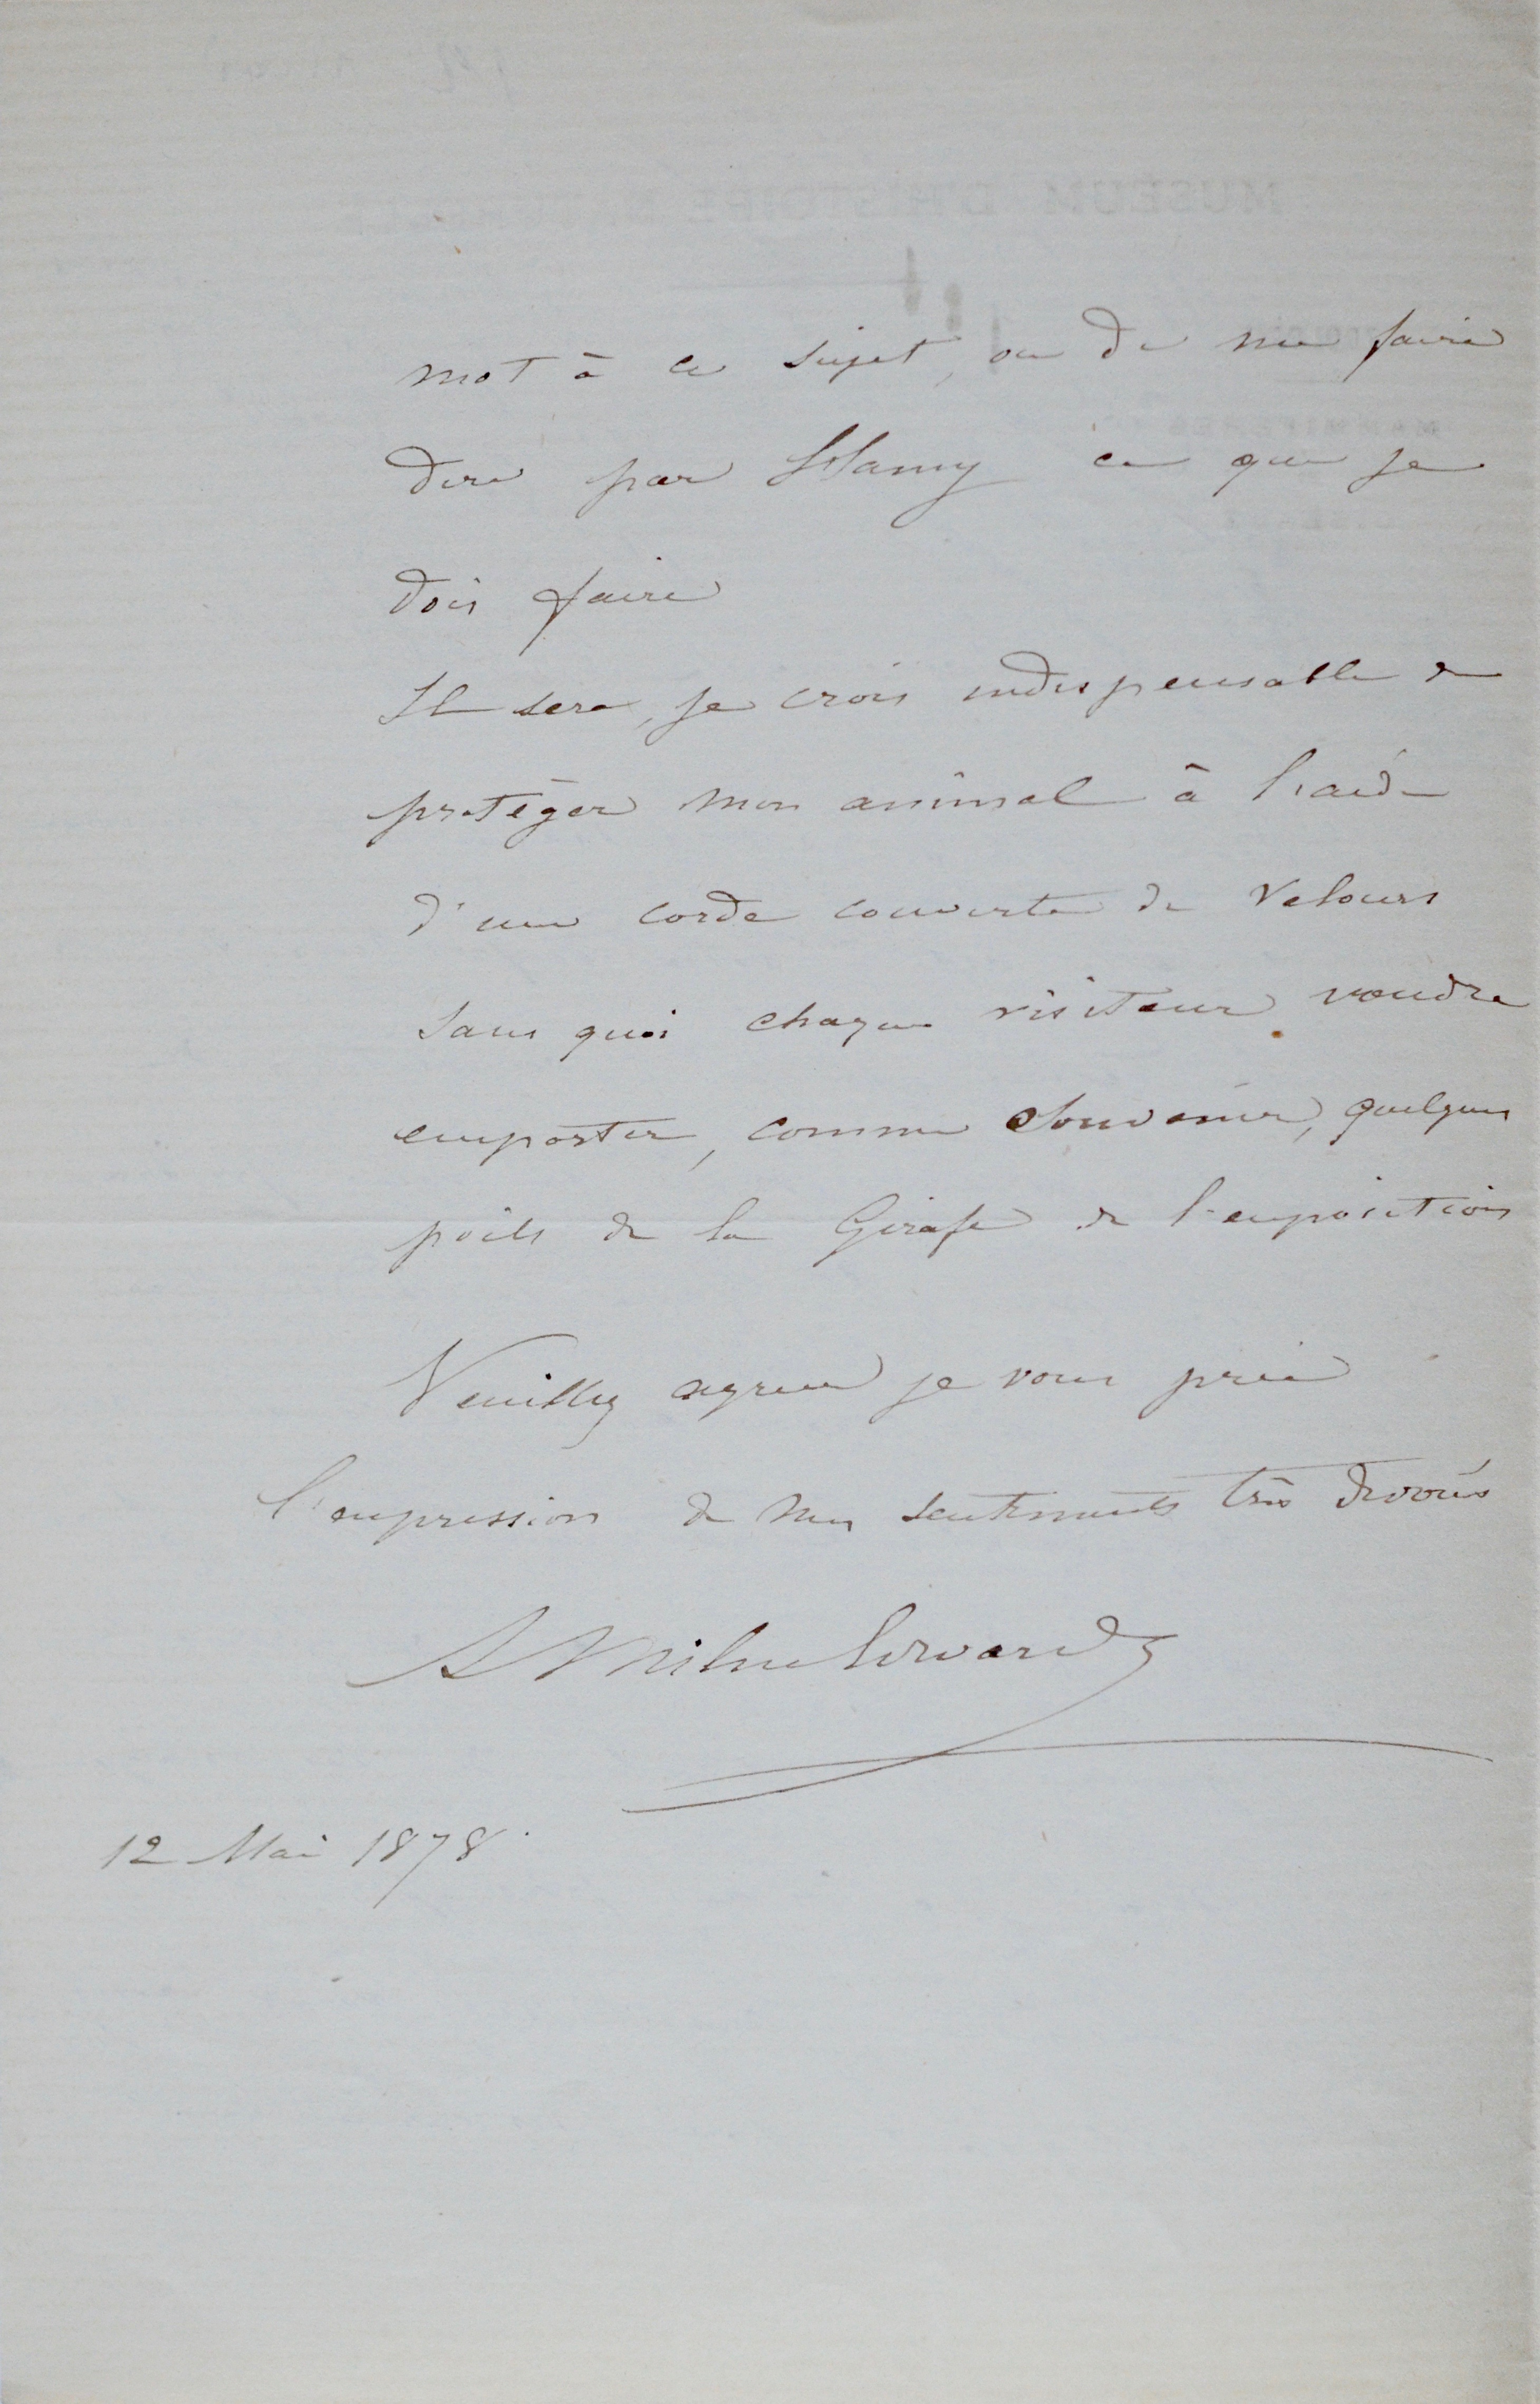 mot à ce sujet, ou de me faire
dire par Hamy ce que je
dois faire
Il sera, je crois indispensable de
protéger mon animal à l'aide
d'une corde couverte de velours
sans quoi chaque visiteur voudra
emporter, comme souvenir, quelques
poils de la Girafe de l'exposition
Veuillez agréer je vous prie
l'expression de mes sentiments très dévoués
A Milne Edwards
12 Mai 1878.